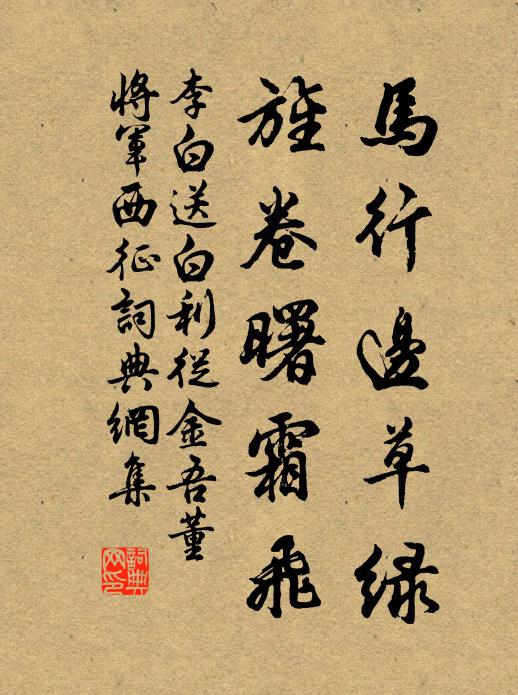 馬行邊草綠
旌卷曙霜飛
李白送白利從金吾董
將軍西征詞典網集
詞典
网印